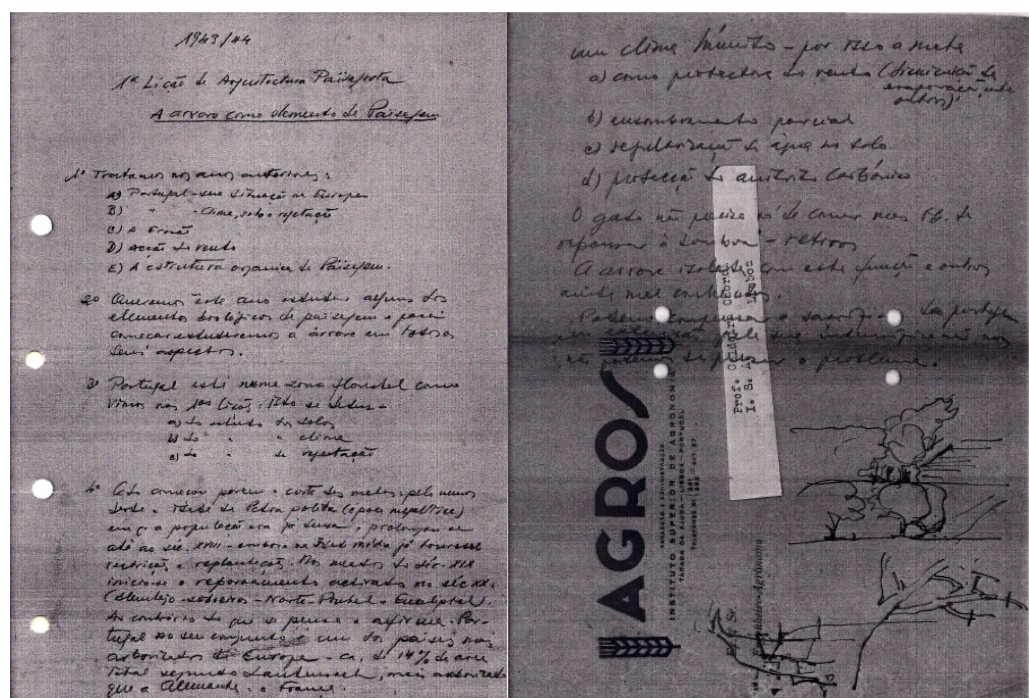 1943/44
1ª Lição de Arquitectura Paisagista
A arvore como elemento de Paisagem
1º Tratamos nos anos anteriores:
A) Portugal - sua situação na Europa
B) " - Clima, solo e vegetação
C) A erosão
D) Acção do vento
E) A estrutura organica da Paisagem.
2º Queremos este ano estudar alguns dos
elementos biológicos da paisagem e para
começar estudaremos a árvore em todos os
seus aspectos.
3º Portugal está numa zona florestal como
vimos nas 1as lições. Isto se deduz -
a) do estudo dos solos
b) do " " clima
c) do " da vegetação
4º Cedo começou porem o corte das matas, pelo menos
desde a idade da Pedra polida (época megalítica)
em q a população era já densa e prolongou-se
até ao séc. XVIII - embora na Idade média já houvesse
restrição e replantação. Nos meados do séc. XIX
inicia-se o repovoamento activado no séc XX.
(Alentejo - sobreiros - Norte Pinhal e Eucaliptal).
Ao contrário do que se pensa e afirma Por-
tugal no seu conjunto é um dos países mais
arborizados da Europa - ca. de 14% da area
total segundo Lautensach, mais arborizado
que a Alemanha e France.
um clima húmido - por isso a mata
a) como protectora do vento (diminuição da
evaporação, entre
outros)
b) ensombramento parcial
c) regularização da água no solo
d) protecção do anidrido Carbónico
O gado não precisa só de comer mas tb. de
repousar à sombra -
A arvore isolada com esta função e outros
ainda mal conhecidos.
Podem compensar o sacrifício da pastagem
em
não o problema.
Prof. Caldeira Cabral
I. S. A. Lisboa
AGROS
INSTITUTO SUPERIOR DE AGRONOMIA
TAPADA DA AJUDA - LISBOA - PORTUGAL
Engenheiro-Agrónomo